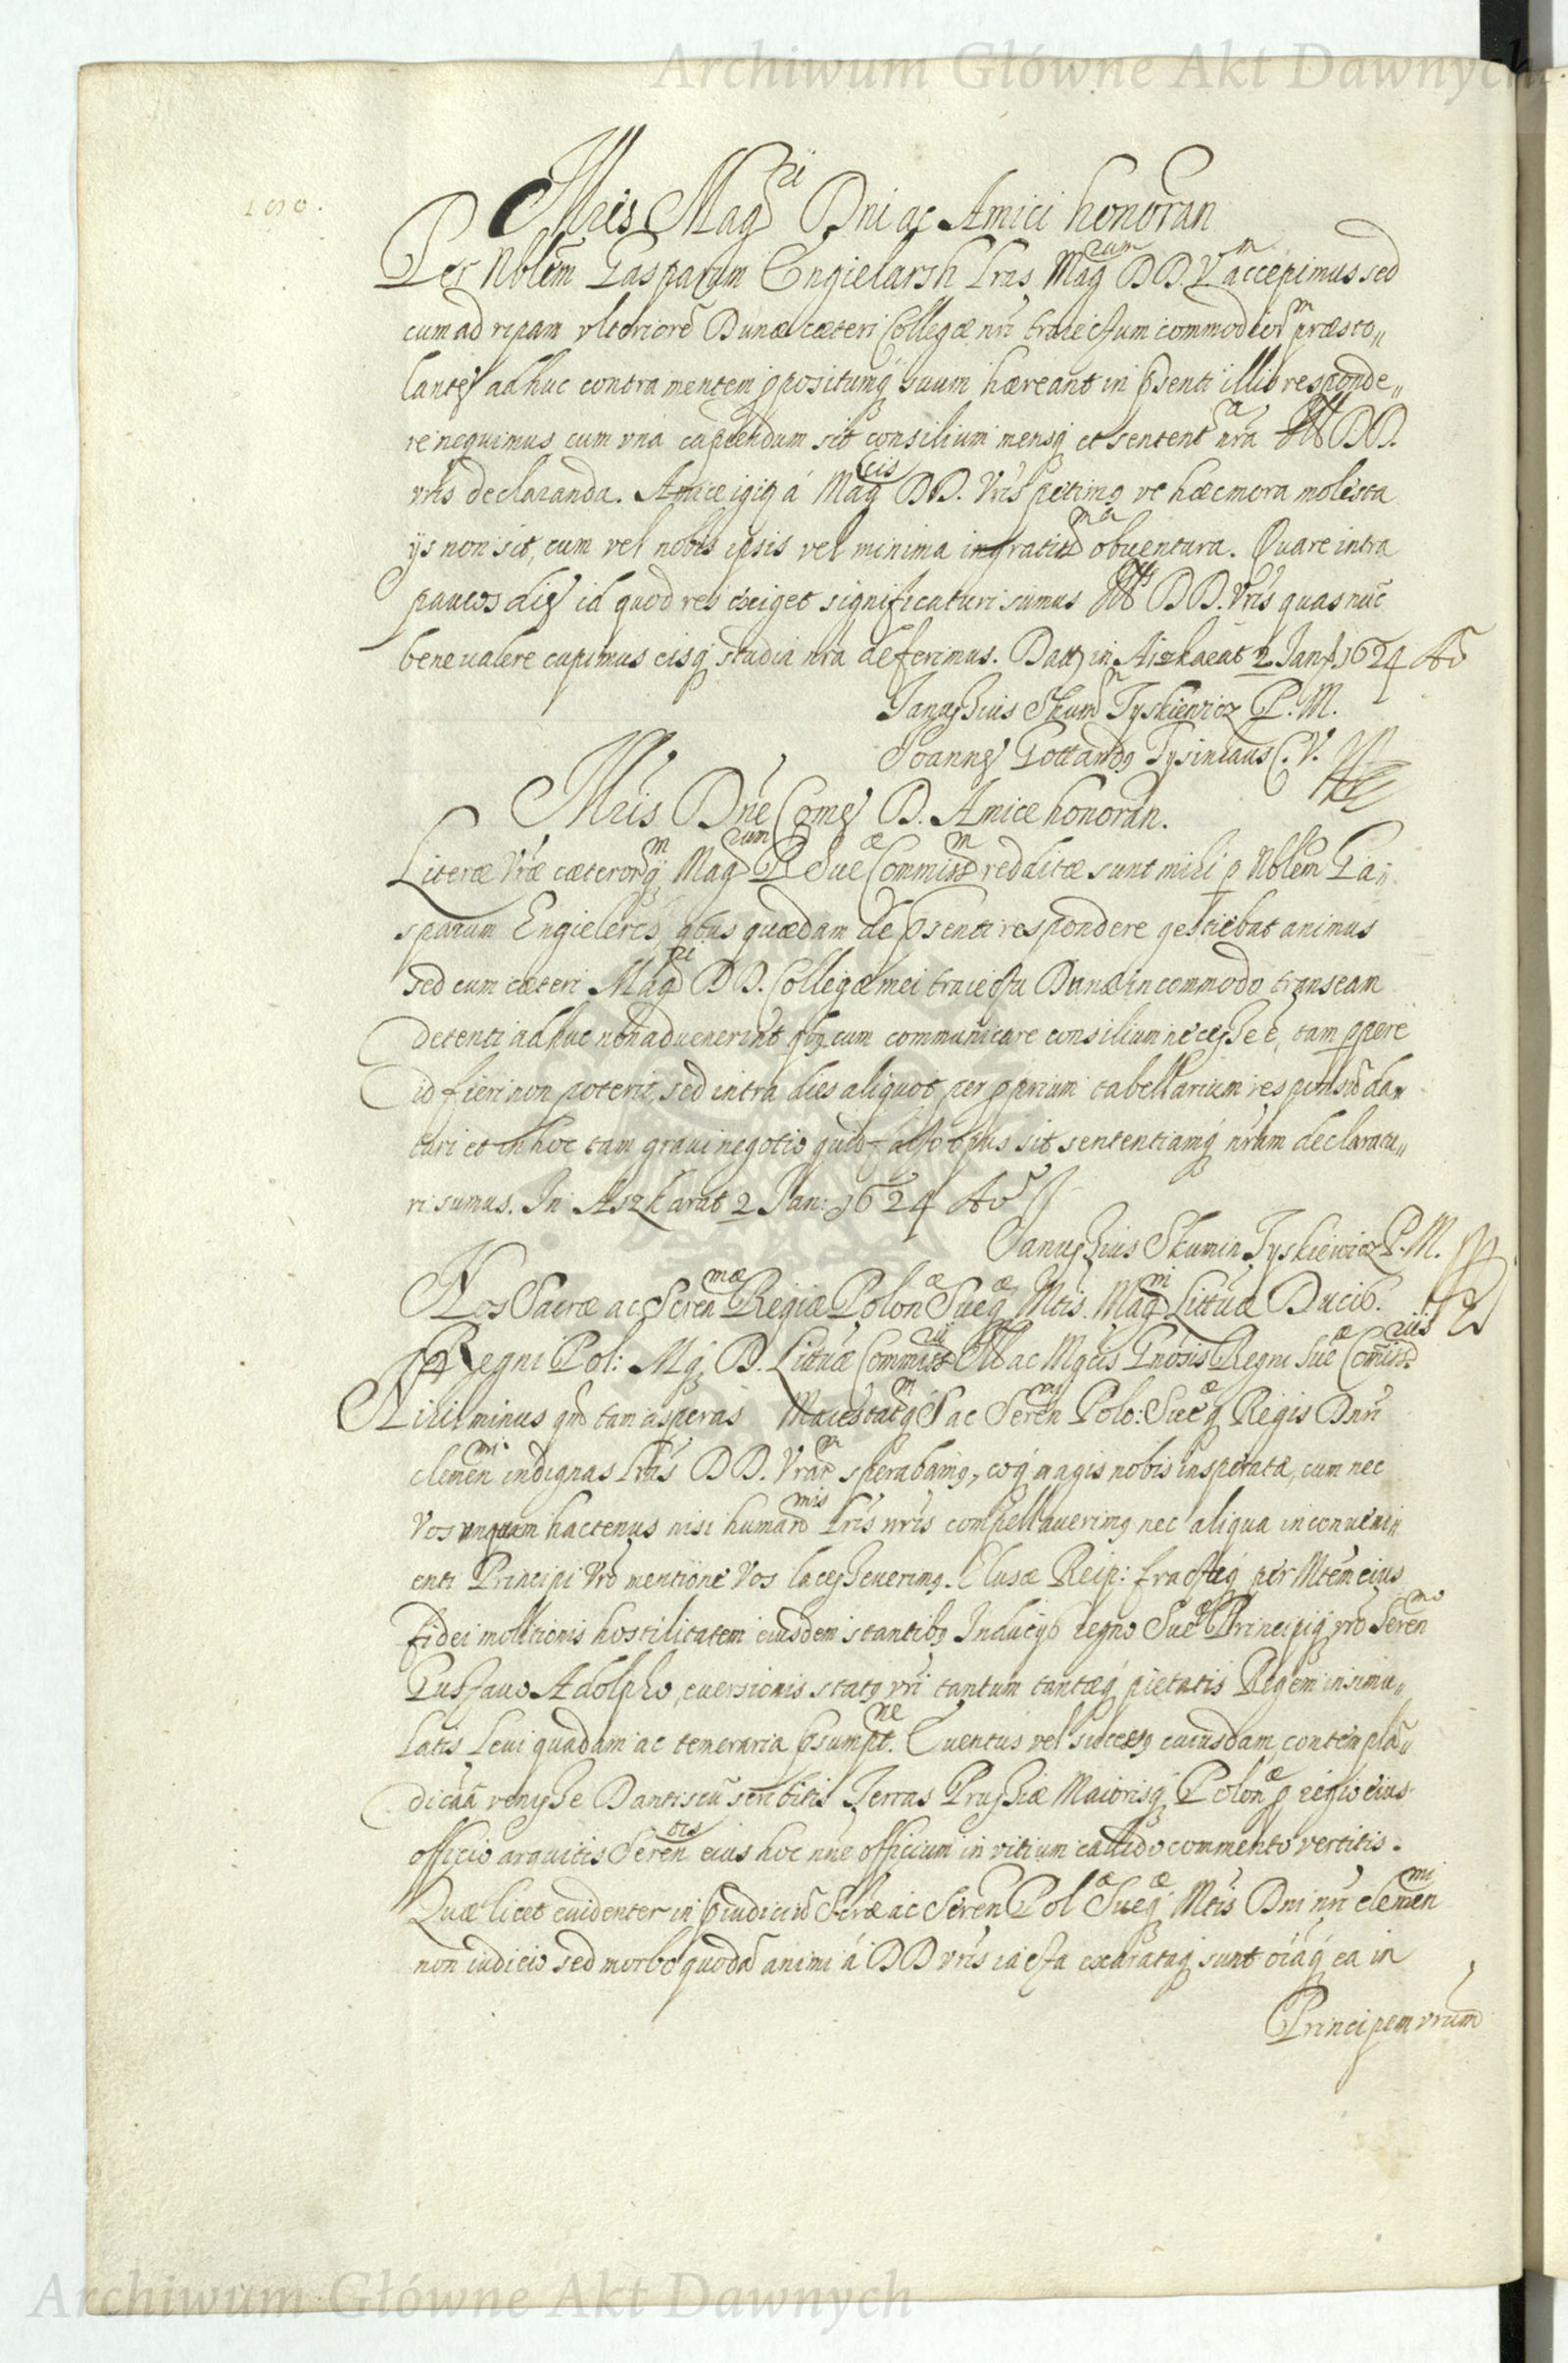 Archiwum Główne Akt Dawnych
Illres Mag ci Dni ac Amici honoran
Per Nblem Gasparum Engielarsh Lras Mag cum DD. V accepimus sed
cum ad ripam vlteriore Dunæ cæteri Collegæ nri traiectum commodior m præsto„
lantes adhuc contra mentem ppositumq suum hæreant in psenti illis responde„
re nequimus cum vna capiendum sit consilium mensq et sentent a nra DD.
vris declaranda. Amice igitr á Mag cis DD. Vris petimg vt hæc mora molesta
ijs non sit, cum vel nobis ipsis vel minima ingratis ma obuentura. Quare intra
paucos dies id quod res exiget significaturi sumus DD. Vris quas nuc
bene ualere cupimus eisq studia nra deferimus. Datt in Aszkaeat 2 Jan 1624 Ao
Janusshius Skum Tyskiewicz P. M.
Joannes Gottardg Tysinhaus C. V.
Illris Dne Comes D. Amice honoran.
Literæ Vræ cæterorq m Mag rum R Sue æ Commiss m redditæ sunt mihi p Nblem Ga„
sparum Engielerch, qbus quædam de psenti respondere gestiebat animus
sed cum cæteri Mag ci DD. Collegæ mei traiectu Dunæ incommodo transeant
detenti adhuc non aduenerint qbg cum communicare consilium necesshe e, tam ppere
id fieri non poterit, sed intra dies aliquot per pprium tabellarium responsu da„
turi et in hoc tam graui negotio quid facto opus sit sententiamq nram declaratu„
ri sumus. In Aszkarat 2 Jan: 1624 Ao
Janusshius Skumin Tyskiewicz P. M.
Nos Sacræ ac Seren mæ Regiæ Polon æ Sueq æ Mtis. Mag ni Littuæ Ducib.
Regni Pol: Mq D. Littuæ Commiss rij ac Mgcis Gnosis Regni Sue æ Comiss. riis
Nihil minus qm tam asperas Maiestatq S ac Seren mi Polo: Sue æ q Regis Dnri
clemen mi indignas Lras DD. Vrar sperabamg, eoq magis nobis insperatæ, cum nec
Vos vnquam hactenus nisi human mis Lris nris compellauerimg nec aliqua inconueni„
enti Principi Vro mentione Vos lacesshuerimg. Elusæ Reip: fractæq per Mtem eius
fidei molitionis hostilitatem eiusdem stantibg Inducijs regno Sue æ Principiq vro Seren mo
Gustauo Adolpho, euersionis statg vri tantum tantæq pietatis Regem insimu„
latis leui quadam ac temeraria psumpt ne. Euentus vel successg cuiusdam contempla„
di caa venisshe Dantiscu scribitis Terras Prusshiæ Maiorisq Polon æ p regio eius
officio arguitis Seren tis eius hoc nne officium in vitium callido commento vertitis.
Quæ licet euidenter in piudiciu Scræ ac Seren Pol æ Sueq æ Mtis Dni nri clemen mi
non iudicio sed morbo quoda animi á DD vris iacta exarataq sunt oiaq ea in
Principem vrum
Archiwum Główne Akt Dawnych